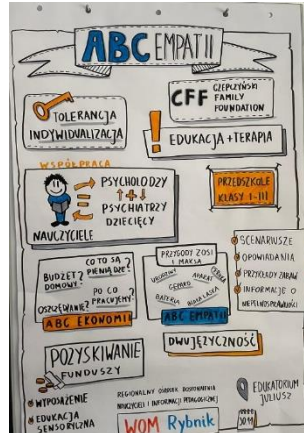 ABC EMPATII
TOLERANCJA
INDYWIDUALIZACJA
CFF
CZEPCZYŃSKI
FAMILY
FOUNDATION
! EDUKACJA + TERAPIA
WSPÓŁPRACA
PSYCHOLODZY
PSYCHIATRZY
DZIECIĘCY
NAUCZYCIELE
PRZEDSZKOLE
KLASY I-III
CO TO SĄ
PIENIĄDZE?
BUDŻET
DOMOWY?
PO CO
PRACUJEMY?
OSZCZĘDZANIE?
ABC EKONOMII
PRZYGODY ZOSI
I MAKSA
URODZINY
AFERA
GEPARD
BATERIA
BIAŁA LASKA
ABC EMPATII
SCENARIUSZE
OPOWIADANIA
PRZYKŁADY ZABAW
INFORMACJE O
NIEPEŁNOSPRAWNOŚCI
DWUJĘZYCZNOŚĆ
POZYSKIWANIE
FUNDUSZY
WYPOSAŻENIE
EDUKACJA
SENSORYCZNA
REGIONALNY OŚRODEK DOSKONALENIA
NAUCZYCIELI I INFORMACJI PEDAGOGICZNEJ
WOM Rybnik
EDUKATORIUM
JULIUSZ